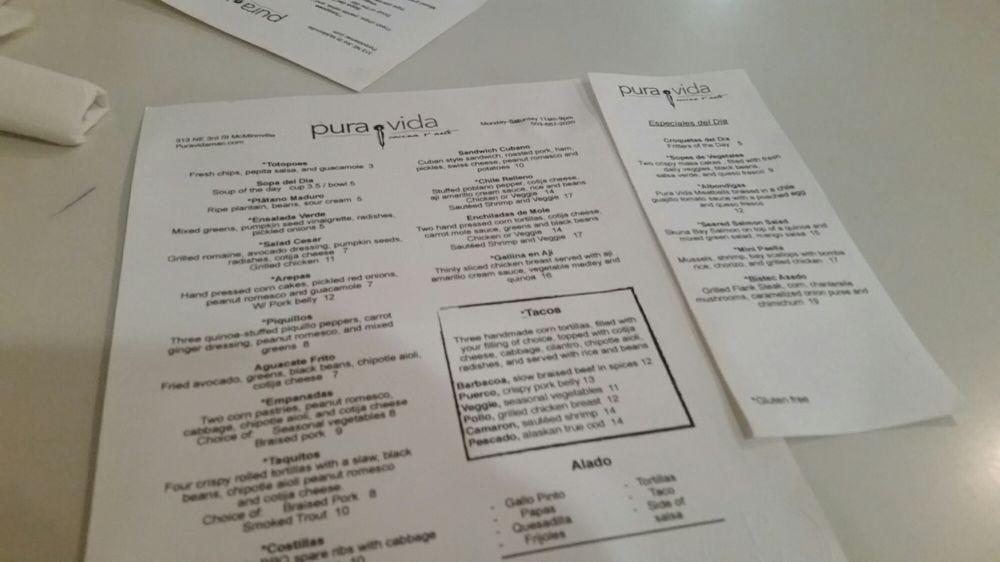 pura vida
cocina y arte
313 NE 3rd St McMinnville
Puravidamac.com
Monday-Saturday 11am-9pm
503-687-2020
*Totopos
Fresh chips, pepita salsa, and guacamole 3
Sopa del Dia
Soup of the day cup 3.5 / bowl 5
*Plátano Maduro
Ripe plantain, beans, sour cream 5
*Ensalada Verde
Mixed greens, pumpkin seed vinaigrette, radishes,
pickled onions 5
*Salad Cesar
Grilled romaine, avocado dressing, pumpkin seeds,
radishes, cotija cheese 7
Grilled chicken 11
*Arepas
Hand pressed corn cakes, pickled red onions,
peanut romesco and guacamole 7
W/ Pork belly 12
*Piquillos
Three quinoa-stuffed piquillo peppers, carrot
ginger dressing, peanut romesco, and mixed
greens 8
Aguacate Frito
Fried avocado, greens, black beans, chipotle aioli,
cotija cheese 7
*Empanadas
Two corn pastries, peanut romesco,
cabbage, chipotle aioli, and cotija cheese
Choice of: Seasonal vegetables 8
Braised pork 9
*Taquitos
Four crispy rolled tortillas with a slaw, black
beans, chipotle aioli peanut romesco
and cotija cheese.
Choice of: Braised Pork 8
Smoked Trout 10
*Costillas
BBQ spare ribs with cabbage
Sandwich Cubano
Cuban style sandwich, roasted pork, ham,
pickles, swiss cheese, peanut romesco and
potatoes 10
*Chile Relleno
Stuffed poblano pepper, cotija cheese,
aji amarillo cream sauce, rice and beans
Chicken or Veggie 14
Sautéed Shrimp and Veggie 17
Enchiladas de Mole
Two hand pressed corn tortillas, cotija cheese,
carrot mole sauce, greens and black beans
Chicken or Veggie 14
Sautéed Shrimp and Veggie 17
*Gallina en Aji
Thinly sliced chicken breast served with aji
amarillo cream sauce, vegetable medley and
quinoa 16
*Tacos
Three handmade corn tortillas, filled with
your filling of choice, topped with cotija
cheese, cabbage, cilantro, chipotle aioli,
radishes, and served with rice and beans
Barbacoa, slow braised beef in spices 12
Puerco, crispy pork belly 13
Veggie, seasonal vegetables 11
Pollo, grilled chicken breast 12
Camaron, sautéed shrimp 14
Pescado, alaskan true cod 14
Alado
- Gallo Pinto
- Papas
- Quesadilla
- Frijoles
- Tortillas
- Taco
- Side of
salsa
pura vida
cocina y arte
Especiales del Dia
Croquetas del Dia
Fritters of the Day 5
*Sopes de Vegetales
Two crispy masa cakes, filled with fresh
daily veggies, black beans,
salsa verde, and queso fresco 9
*Albondigas
Pura Vida Meatballs braised in a chile
guajillo tomato sauce with a poached egg
and queso fresco
12
*Seared Salmon Salad
Skuna Bay Salmon on top of a quinoa and
mixed green salad, mango salsa 15
*Mini Paella
Mussels, shrimp, bay scallops with bomba
rice, chorizo, and grilled chicken 17
*Bistec Asado
Grilled Flank Steak, corn, chanterelle
mushrooms, caramelized onion puree and
chimichurri 19
*Gluten free